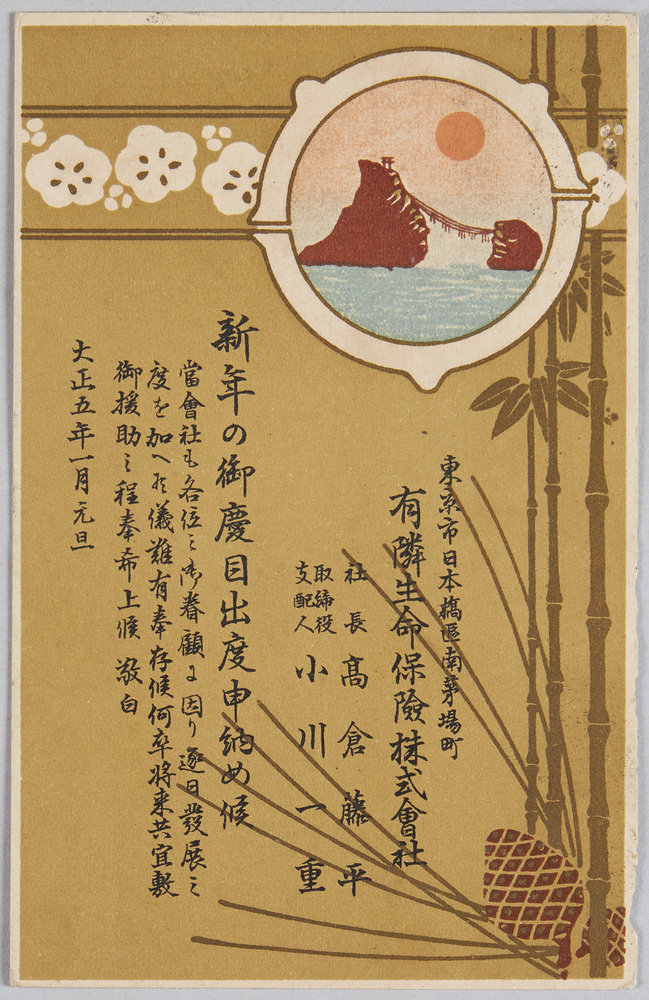 東京市日本橋區南茅場町
有隣生命保險株式會社
社長 髙倉藤平
取締役
支配人 小川一重
新年の御慶目出度申納め候
當會社も各位之御眷顧に因り逐日發展之
度を加へ候儀難有奉存候何卒将来共宜敷
御援助之程奉希上候 敬白
大正五年一月元旦